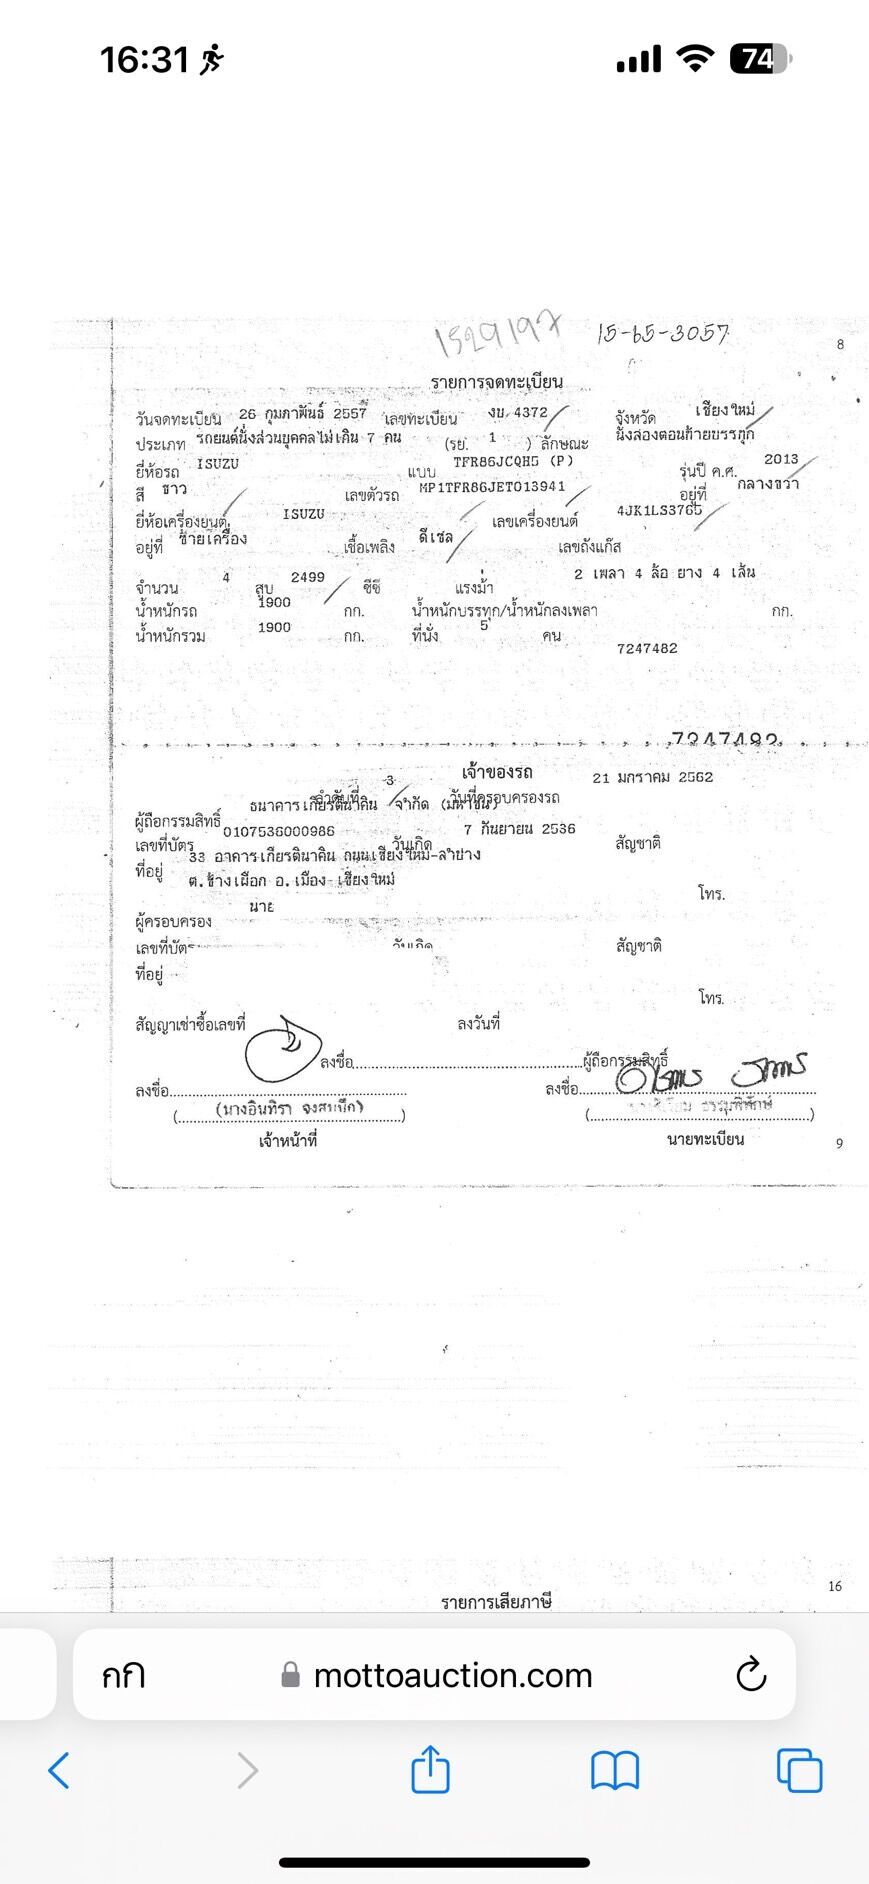 16:31
74
1529197
15-65-3057
8
รายการจดทะเบียน
วันจดทะเบียน 26 กุมภาพันธ์ 2557 เลขทะเบียน งบ 4372 จังหวัด เชียงใหม่
ประเภท รถยนต์นั่งส่วนบุคคลไม่เกิน 7 คน (รย. 1 ) ลักษณะ นั่งสองตอนท้ายบรรทุก
ยี่ห้อรถ ISUZU แบบ TFR86JCQH5 (P) รุ่นปี ค.ศ. 2013
สี ขาว เลขตัวรถ MP1TFR86JET013941 อยู่ที่ กลางขวา
ยี่ห้อเครื่องยนต์ ISUZU เลขเครื่องยนต์ 4JK1LS3765
อยู่ที่ ซ้ายเครื่อง เชื้อเพลิง ดีเซล เลขถังแก๊ส
จำนวน 4 สูบ 2499 ซีซี แรงม้า 2 เพลา 4 ล้อ ยาง 4 เส้น
น้ำหนักรถ 1900 กก. น้ำหนักบรรทุก/น้ำหนักลงเพลา กก.
น้ำหนักรวม 1900 กก. ที่นั่ง 5 คน
7247482
7247482
เจ้าของรถ
ลำดับที่ 3 วันที่ครอบครองรถ 21 มกราคม 2562
ผู้ถือกรรมสิทธิ์ ธนาคารเกียรตินาคิน จำกัด (มหาชน)
เลขที่บัตร 0107536000986 วันเกิด 7 กันยายน 2536 สัญชาติ
ที่อยู่ 33 อาคารเกียรตินาคิน ถนนเชียงใหม่-ลำปาง
ต.ช้างเผือก อ.เมือง เชียงใหม่
โทร.
ผู้ครอบครอง นาย
เลขที่บัตร วันเกิด สัญชาติ
ที่อยู่
โทร.
สัญญาเช่าซื้อเลขที่ ลงวันที่
ลงชื่อ ผู้ถือกรรมสิทธิ์
ลงชื่อ ลงชื่อ
(นางอินทิรา )
เจ้าหน้าที่ นายทะเบียน
9
16
รายการเสียภาษี
กก mottoauction.com